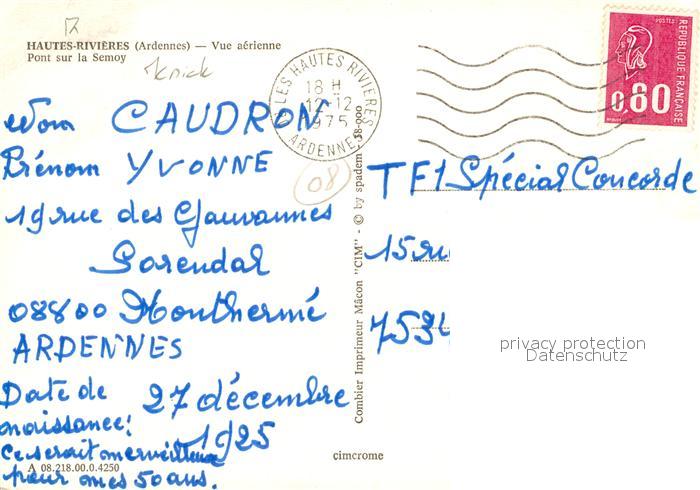 HAUTES-RIVIÈRES (Ardennes) — Vue aérienne
Pont sur la Semoy
LES HAUTES RIVIERES
18 H
12-12
1975
ARDENNES
POSTES
REPUBLIQUE FRANÇAISE
0,80
Nom CAUDRON
Prénom YVONNE
08
19 rue des
08800 Monthermé
ARDENNES
Date de
naissance: 27 décembre
1925
Ce serait merveilleux
pour mes 50 ans.
A 08.218.00.0.4250
Combier Imprimeur Mâcon "CIM" - © by spadem
cimcrome
TF1 Spécial Concorde
15 ru
7594
privacy protection
Datenschutz